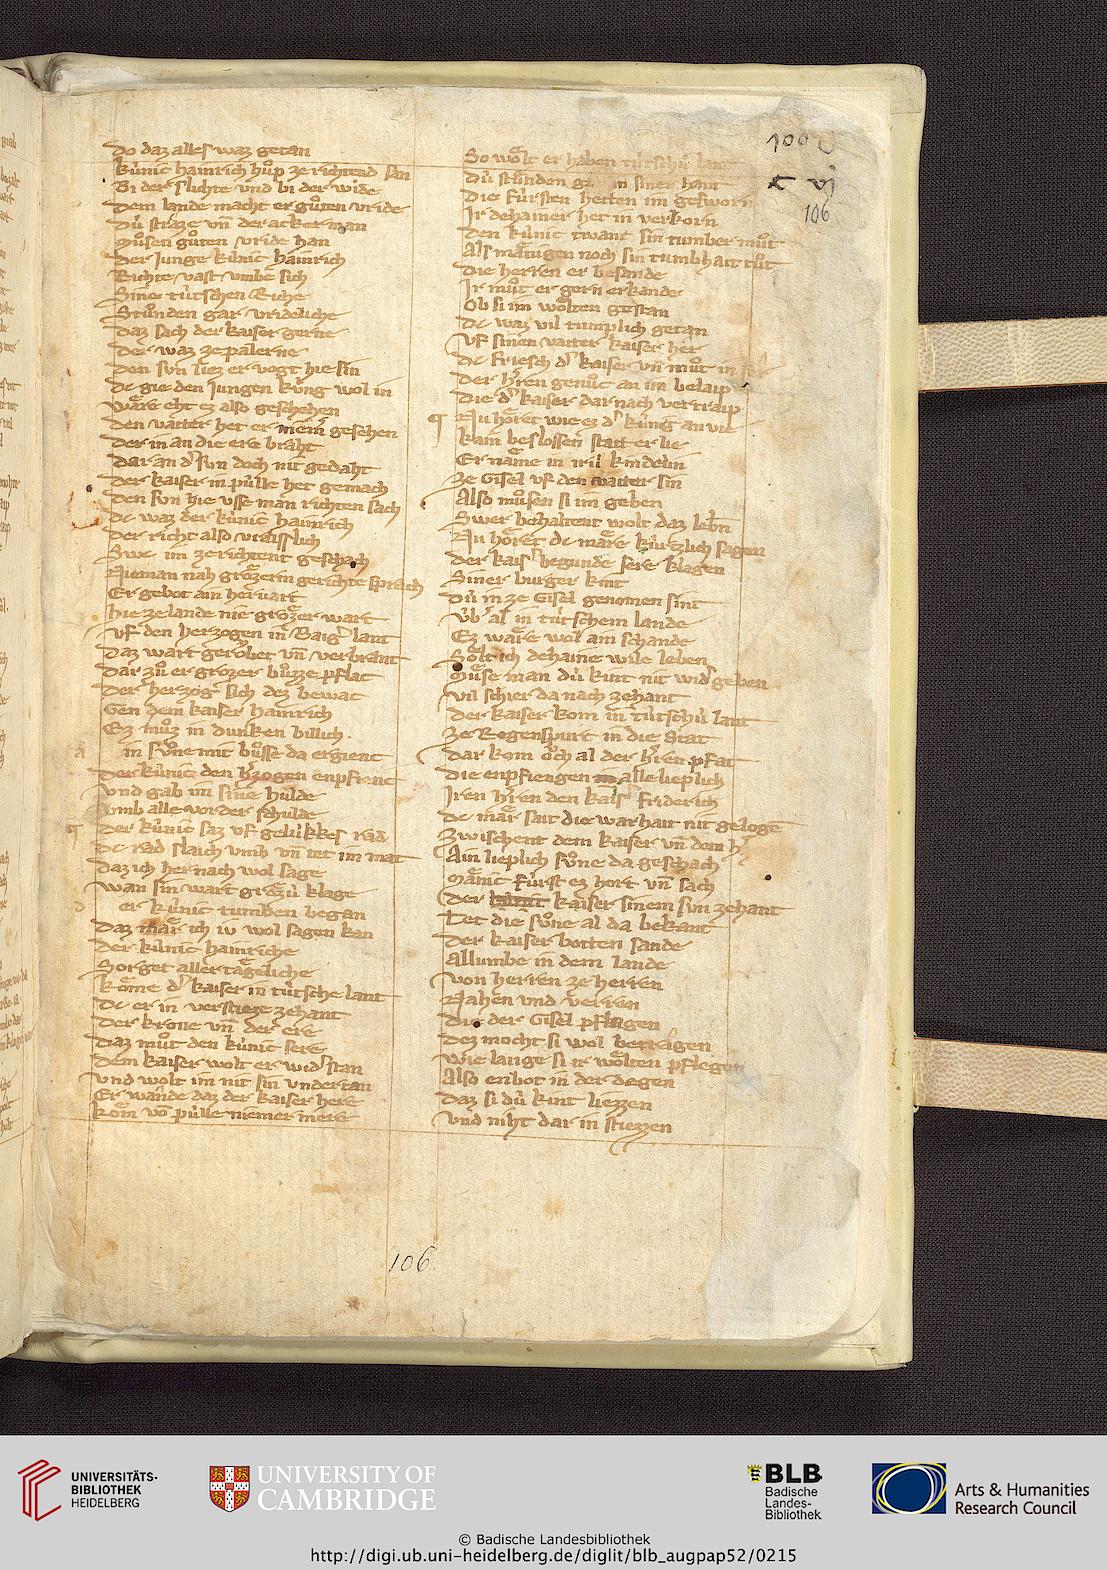 Do daz alles waz getan
kúnic hainrich hup ze richtend san
Bi der slichte vnd bi der wide
Dem lande macht er guͦten vride
Dú straze vn̄ der acker man
muͦsen guͦten vride han
Der Junge kúnic hainrich
Richte vast vmbe sich
Sine tútschen Riche
Stuͦnden gar vrideliche
Daz sach der kaiser gerne
der waz ze palerne
den svn liez er vogt hie sin
dc gie den Jungen kúng wol in
wāre eht ez also geschehen
den vatter het er niem gesehen
der in an die ere braht
Dar an dˢ svn doch nit gedaht
der kaiser in púlle het gemach
den svn hie vsse man richten sach
dc waz der kúnic hainrich
der richt also vraisslich
Swe im ze richtent geschach
Nieman nah groͤzerm gerichte sprach
Er gebot ain heruart
hie ze lande nie groͤzer wart
vf den herzogen in Baigˢ lant
Daz wart geroͮbet vn̄ verbrant
Dar zuͦ er grozer buͦzze pflac
der herzog sich dez bewac
Gen dem kaiser hainrich
Ez muͦz in dunken billich.
in svͦne mit buͦsse da ergient
der kúnic den hˢzogen enpfienc
vnd gab im sine hulde
vmb alle vorder schulde
der kúnic saz vf gelúkkes rad
dc rad slaich vmb vn̄ tet im mat
Daz ich her nach wol sage
wan sin wart groͤzú klage
er kúnic tumben began
Daz maͤr ich iv wol sagen kan
der kúnic hainriche
Sorget aller taͤgeliche
koͤme dˢ kaiser in tútsche lant
dc er in verstieze zehant
der krone vn̄ der ere
Daz muͦt den kúnic sere
dem kaiser wolt er widˢ stan
vnd wolt im nit sin vndertan
Er wande daz der kaiser here
koͤm vō púlle niemer mere
So woͤlt er haben tútschú lant
Dú stuͦnden in siner hant
Die fúrsten hetten im gesworn
Ir dehainer het in verkorn
den kúnic twanc sin tumber muͦt
Als maͤnigen noch sin tumbhait tuͦt
die herren er besande
Ir muͦt er gern erkande
Ob si im woͤlten gestan
dc waz vil tumplich getan
vf sinen vatter kaiser her
dc friesch dˢ kaiser vn̄ muͦt in
der hˢren genuͦc an im belaip
die dˢ kaiser dar nach vertraip
Nu hoͤret wie ez dˢ kúng an vie
kain beslossen statt er lie
Er naͤme in irú kindelin
ze Gisel vf den vatter sin
Also muͦsen si im geben
Swer behaltent wolt daz lebn̄
Nu hoͤret dc maͤre kurtzlich sagen
der kaisˢ begunde sere klagen
Siner burger kint
Dú in ze Gisel genomen sint
vˢbˢ al in tútschem lande
Ez waͤre wol ain schande
Soͤlt ich dehaine wile leben
muͤse man dú kint nit widˢ geben
vil schier da nach zehant
der kaiser kom in tútschú lant
ze Regenspurc in die stat
dar kom oͮch al der hˢren pfat
die enpfiengen alle lieplich
Iren hˢren den kaisˢ friderich
dc maͤr sait die warhait nit geloge
zwischent dem kaiser vn̄ dem hˢz
Ain lieplich svͦne da geschach
maͤnic fúrst ez hort vn̄ sach
der kaiser sinem svn zehant
Tet die svͦne al da bekant
der kaiser botten sande
Allumbe in dem lande
von herren ze herren
Nahen vnd verren
die der Gisel pflagen
dez mocht si wol betragen
wie lange si ir woͤlten pflegen
Also enbot in der degen
Daz si dú kint liezzen
vnd niht dar in stiezzen
106
106
UNIVERSITÄTS-
BIBLIOTHEK
HEIDELBERG
UNIVERSITY OF
CAMBRIDGE
BLB
Badische
Landes-
Bibliothek
Arts & Humanities
Research Council
© Badische Landesbibliothek
http://digi.ub.uni-heidelberg.de/diglit/blb_augpap52/0215